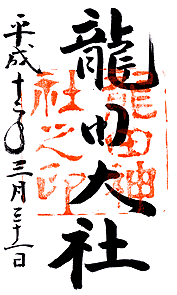 龍田大社
龍田神
社之印
平成十二年三月三十一日